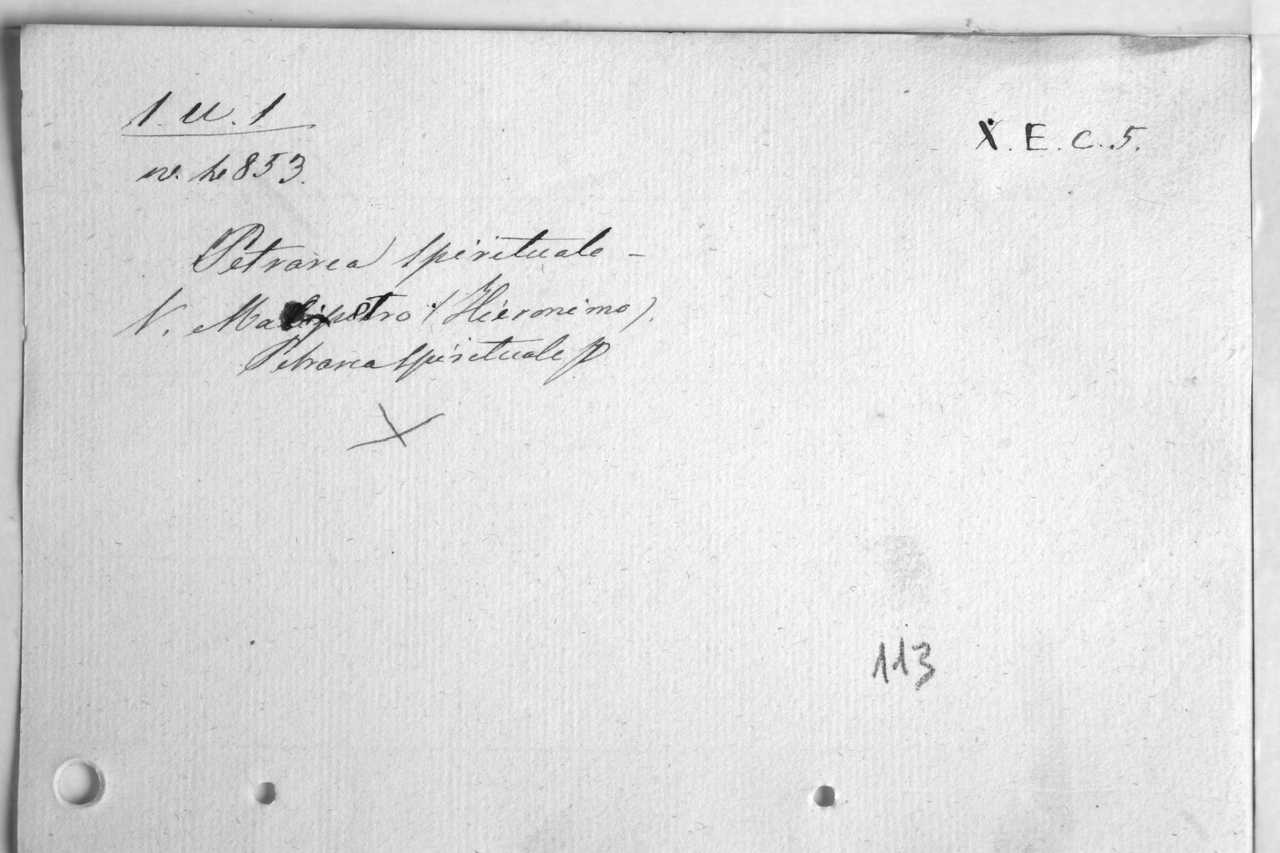 1. U. 1
X. E. C. 5.
nr. 853.
Petrarca Spirituale -
V. Malipetro (Hieronimo).
Petrarca Spirituale
X
113